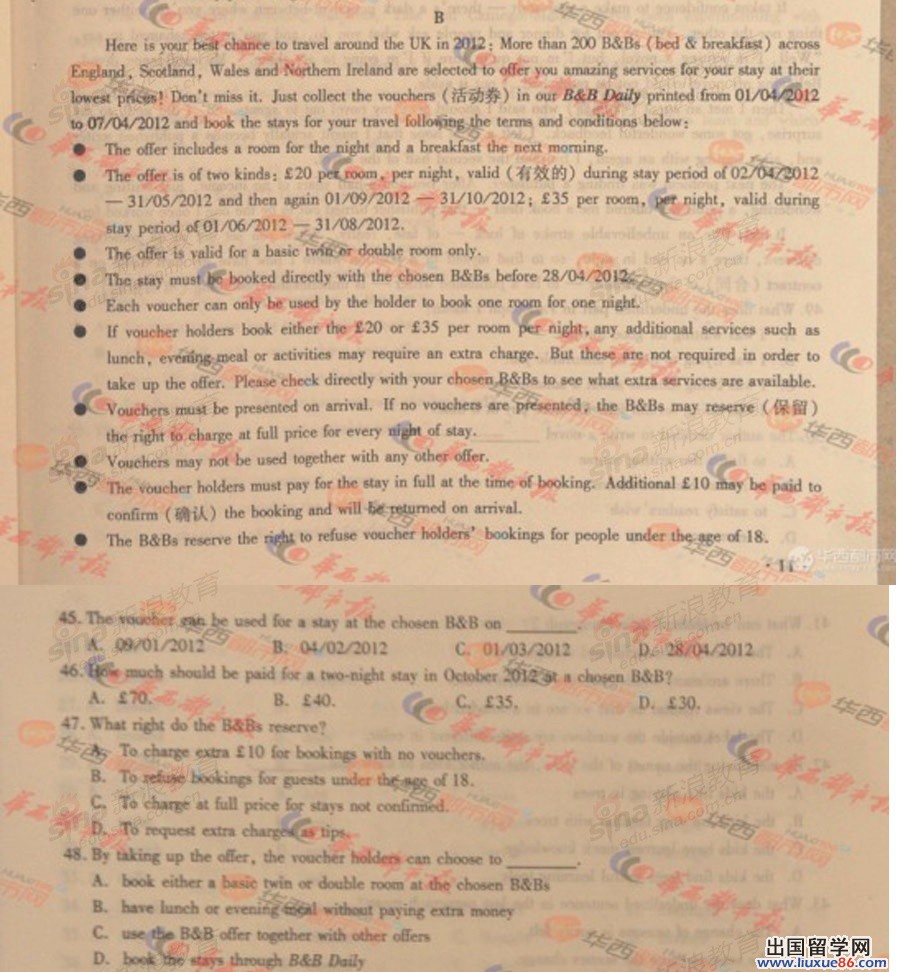 B
Here is your best chance to travel around the UK in 2012: More than 200 B&Bs (bed & breakfast) across
England, Scotland, Wales and Northern Ireland are selected to offer you amazing services for your stay at their
lowest prices! Don't miss it. Just collect the vouchers (活动券) in our B&B Daily printed from 01/04/2012
to 07/04/2012 and book the stays for your travel following the terms and conditions below:
● The offer includes a room for the night and a breakfast the next morning.
● The offer is of two kinds: £20 per room, per night, valid (有效的) during stay period of 02/04/2012
— 31/05/2012 and then again 01/09/2012 — 31/10/2012; £35 per room, per night, valid during
stay period of 01/06/2012 — 31/08/2012.
● The offer is valid for a basic twin or double room only.
● The stay must be booked directly with the chosen B&Bs before 28/04/2012.
● Each voucher can only be used by the holder to book one room for one night.
● If voucher holders book either the £20 or £35 per room per night, any additional services such as
lunch, evening meal or activities may require an extra charge. But these are not required in order to
take up the offer. Please check directly with your chosen B&Bs to see what extra services are available.
● Vouchers must be presented on arrival. If no vouchers are presented, the B&Bs may reserve (保留)
the right to charge at full price for every night of stay.
● Vouchers may not be used together with any other offer.
● The voucher holders must pay for the stay in full at the time of booking. Additional £10 may be paid to
confirm (确认) the booking and will be returned on arrival.
● The B&Bs reserve the right to refuse voucher holders' bookings for people under the age of 18.
· 11 ·
45. The voucher can be used for a stay at the chosen B&B on ______.
A. 09/01/2012 B. 04/02/2012 C. 01/03/2012 D. 28/04/2012
46. How much should be paid for a two-night stay in October 2012 at a chosen B&B?
A. £70. B. £40. C. £35. D. £30.
47. What right do the B&Bs reserve?
A. To charge extra £10 for bookings with no vouchers.
B. To refuse bookings for guests under the age of 18.
C. To charge at full price for stays not confirmed.
D. To request extra charges as tips.
48. By taking up the offer, the voucher holders can choose to ______.
A. book either a basic twin or double room at the chosen B&Bs
B. have lunch or evening meal without paying extra money
C. use the B&B offer together with other offers
D. book the stays through B&B Daily
出国留学网
www.liuxue86.com